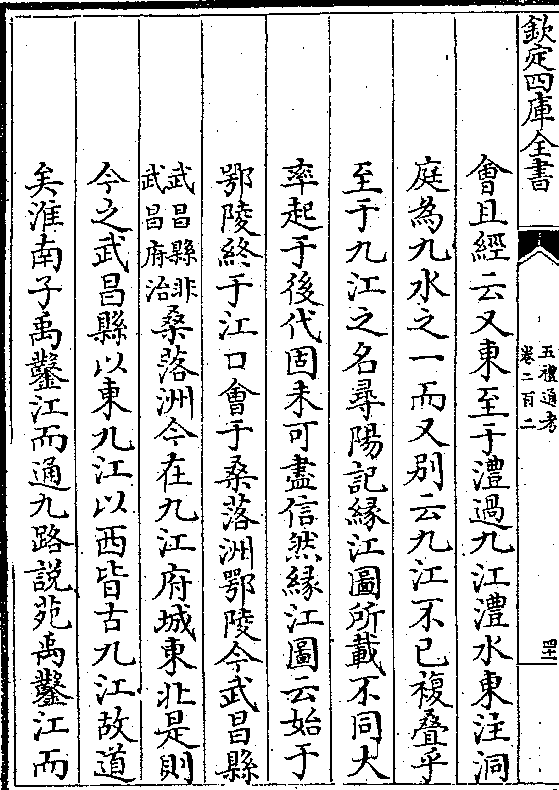 欽定四庫全書
五禮通考
卷二百二
會且經云又東至于澧過九江澧水東注洞
庭為九水之一而又別云九江不已複疊乎
至于九江之名尋陽記緣江圖所載不同大
率起于後代固未可盡信然緣江圖云始于
鄂陵終于江口會于桑落洲鄂陵今武昌縣
武昌縣非
武昌府治
桑落洲今在九江府城東北是則
今之武昌縣以東九江以西皆古九江故道
矣淮南子禹鑿江而通九路說苑禹鑿江而